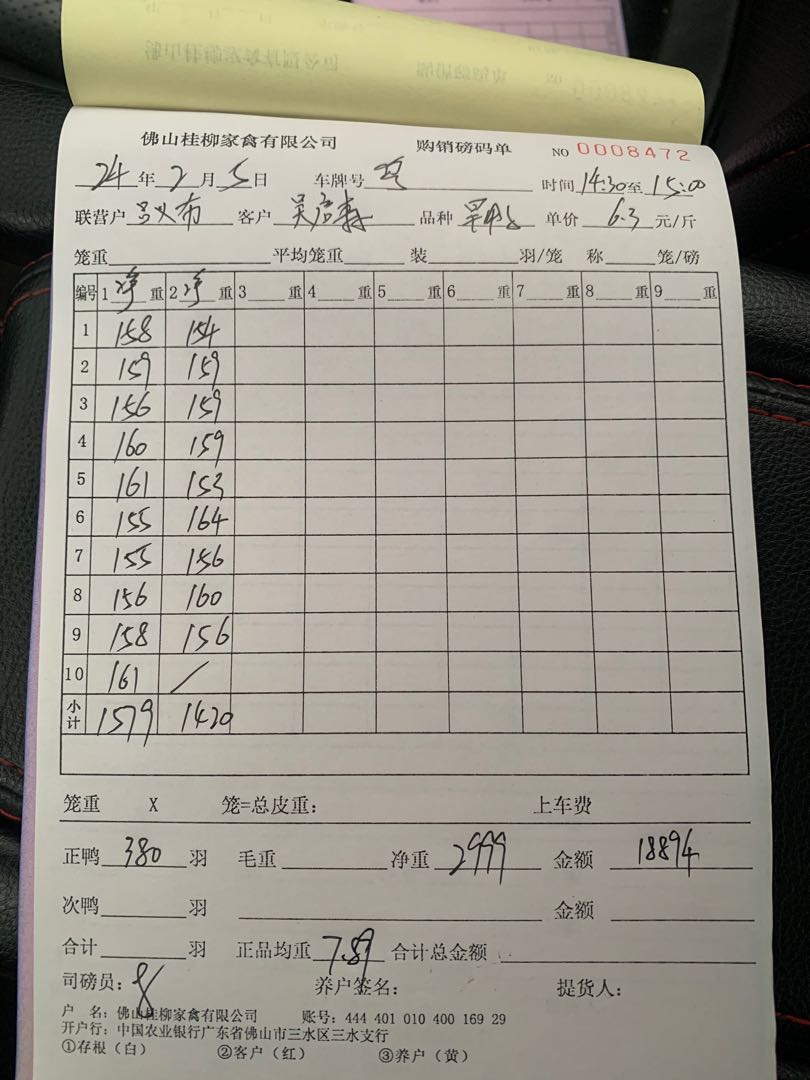 佛山桂柳家禽有限公司 购销磅码单 NO 0008472
24年2月5日 车牌号 时间14:30至15:00
联营户 客户 品种 单价6.3元/斤
笼重 平均笼重 装 羽/笼 称 笼/磅
编号 1净重 2净重 3 重 4 重 5 重 6 重 7 重 8 重 9 重
1 158 154
2 159 159
3 156 159
4 160 159
5 161 153
6 155 164
7 155 156
8 156 160
9 158 156
10 161 /
小计 1579 1420
笼重 X 笼=总皮重: 上车费
正鸭380羽 毛重 净重2999 金额18894
次鸭 羽 金额
合计 羽 正品均重7.89 合计总金额
司磅员: 养户签名: 提货人:
户 名: 佛山桂柳家禽有限公司 账号: 444 401 010 400 169 29
开户行: 中国农业银行广东省佛山市三水区三水支行
①存根（白） ②客户（红） ③养户（黄）